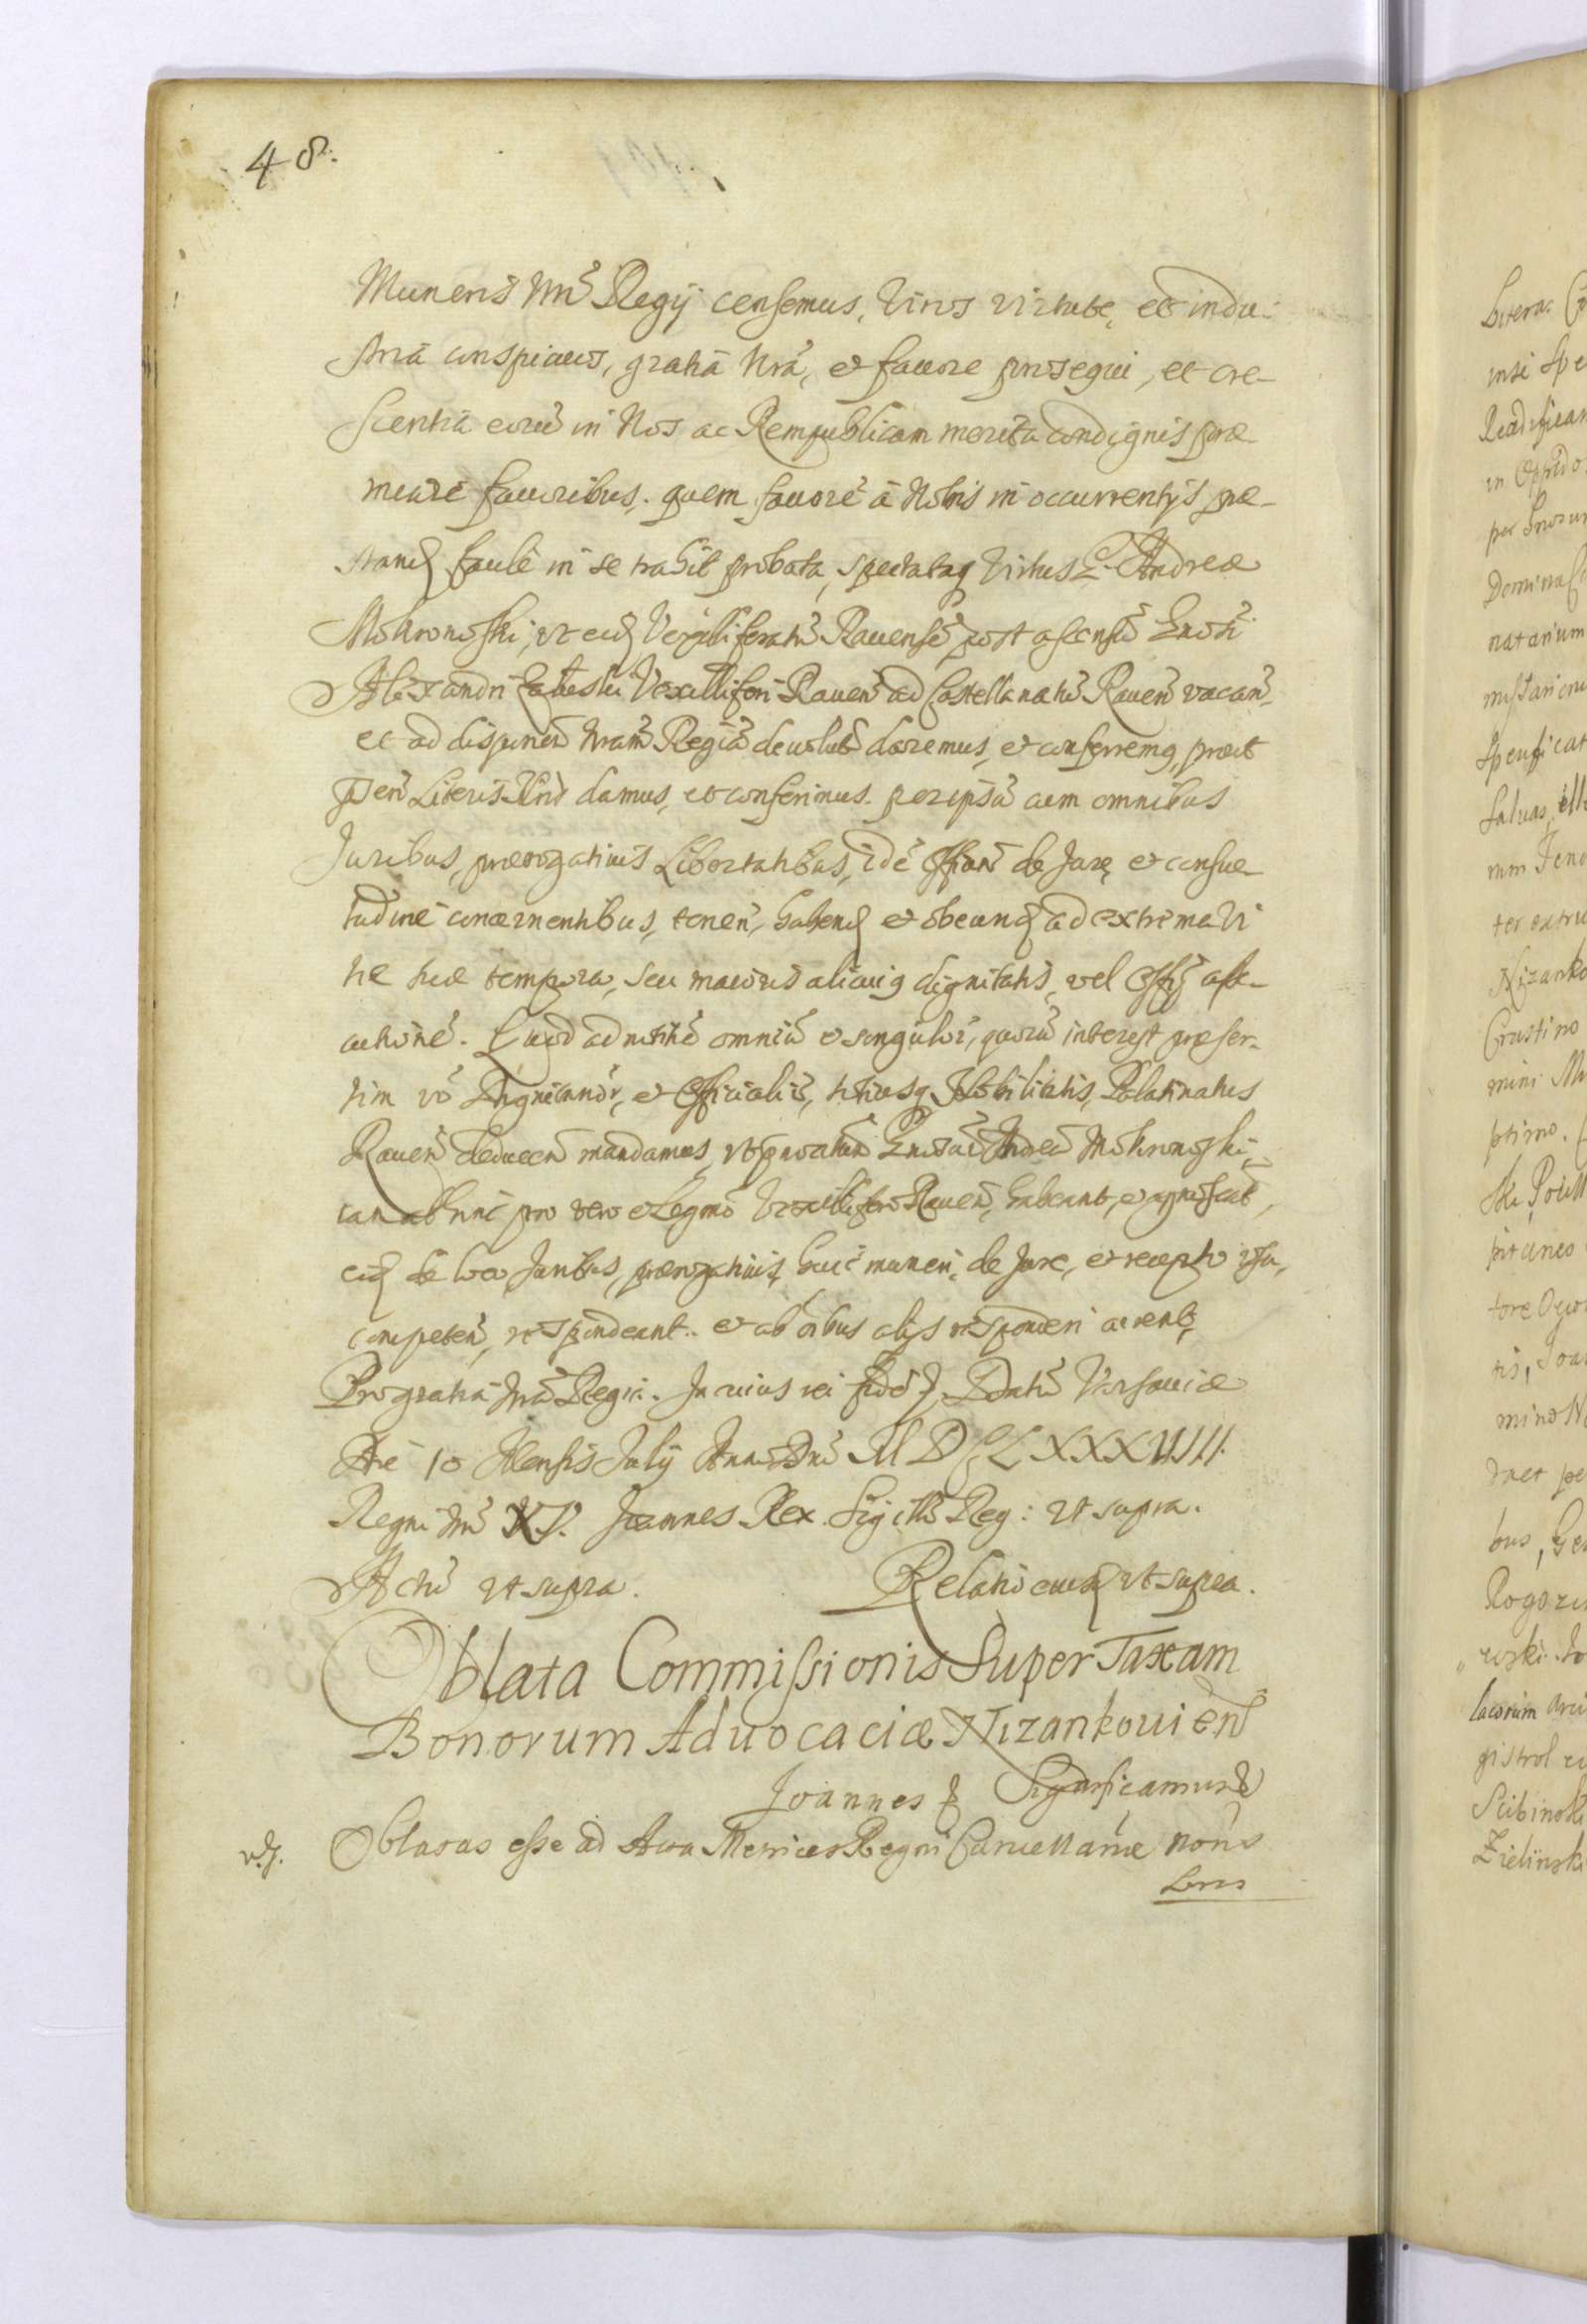 48.
Muneris Nri Regij censemus, Viros virtute, et indu-
stria conspicuos, gratia Nra, et favore prosequi, et cre-
scentia eorū in Nos ac Rempublicam merita condignis præ-
miare favoribus. quem favorē à Nobis in occurrentijs præ-
stand facile in se trahit probata, spectataq Virtus G. Andreæ
Mokronoski, ut eid Vexilliferatū Ravensē post ascensū Gnosi
Alexandri Vexilliferi Raven ad Castellanatū Raven vacan
et ad disponen Nram Regiā devolutū daremus, et conferremq, prout
pñen Literis Nris damus, et conferimus per ipsū cum omnibus
Juribus, prærogativis Libertatibus, idē Officiū de Jure et consue-
tudine concernentibus, tenen, habend et obeund ad extrema vi
tæ suæ tempora, seu maioris alicuig dignitatis, vel Officij asse-
cutionē. Quod ad notitiā omniū et singulor, quorū interest præser-
tim vō Dignitarior, et Officialiū, totiusq Nobilitatis, Palatinatus
Raven deducen mandamus, ut prænatū Gnosū Andreā Mokronoski
iam ab hinc pro vero et legmo Vexillifero Raven, habeant, et agnoscāt,
eid de loco Juribus, prærogativis huic muneri, de Jure, et recepto usu,
competen, respondeant. et ab oibus alijs responderi curent,
Pro gratia Nra Regia. In cuius rei fidē &. Datū Varsaviæ
Die 10 Mensis July Anno Dni MDCLXXXVIIII.
Regni Nri XV. Joannes Rex. Sigillū Reg: ut supra.
Actū ut supra. Relatio eiusd ut supra.
Oblata Commissionis Super Taxam
Bonorum Advocaciæ Nizankovien
Joannes & Significamus &
v.g. Oblatas esse ad Acta Metrices Regni Cancellariæ noris
Lras